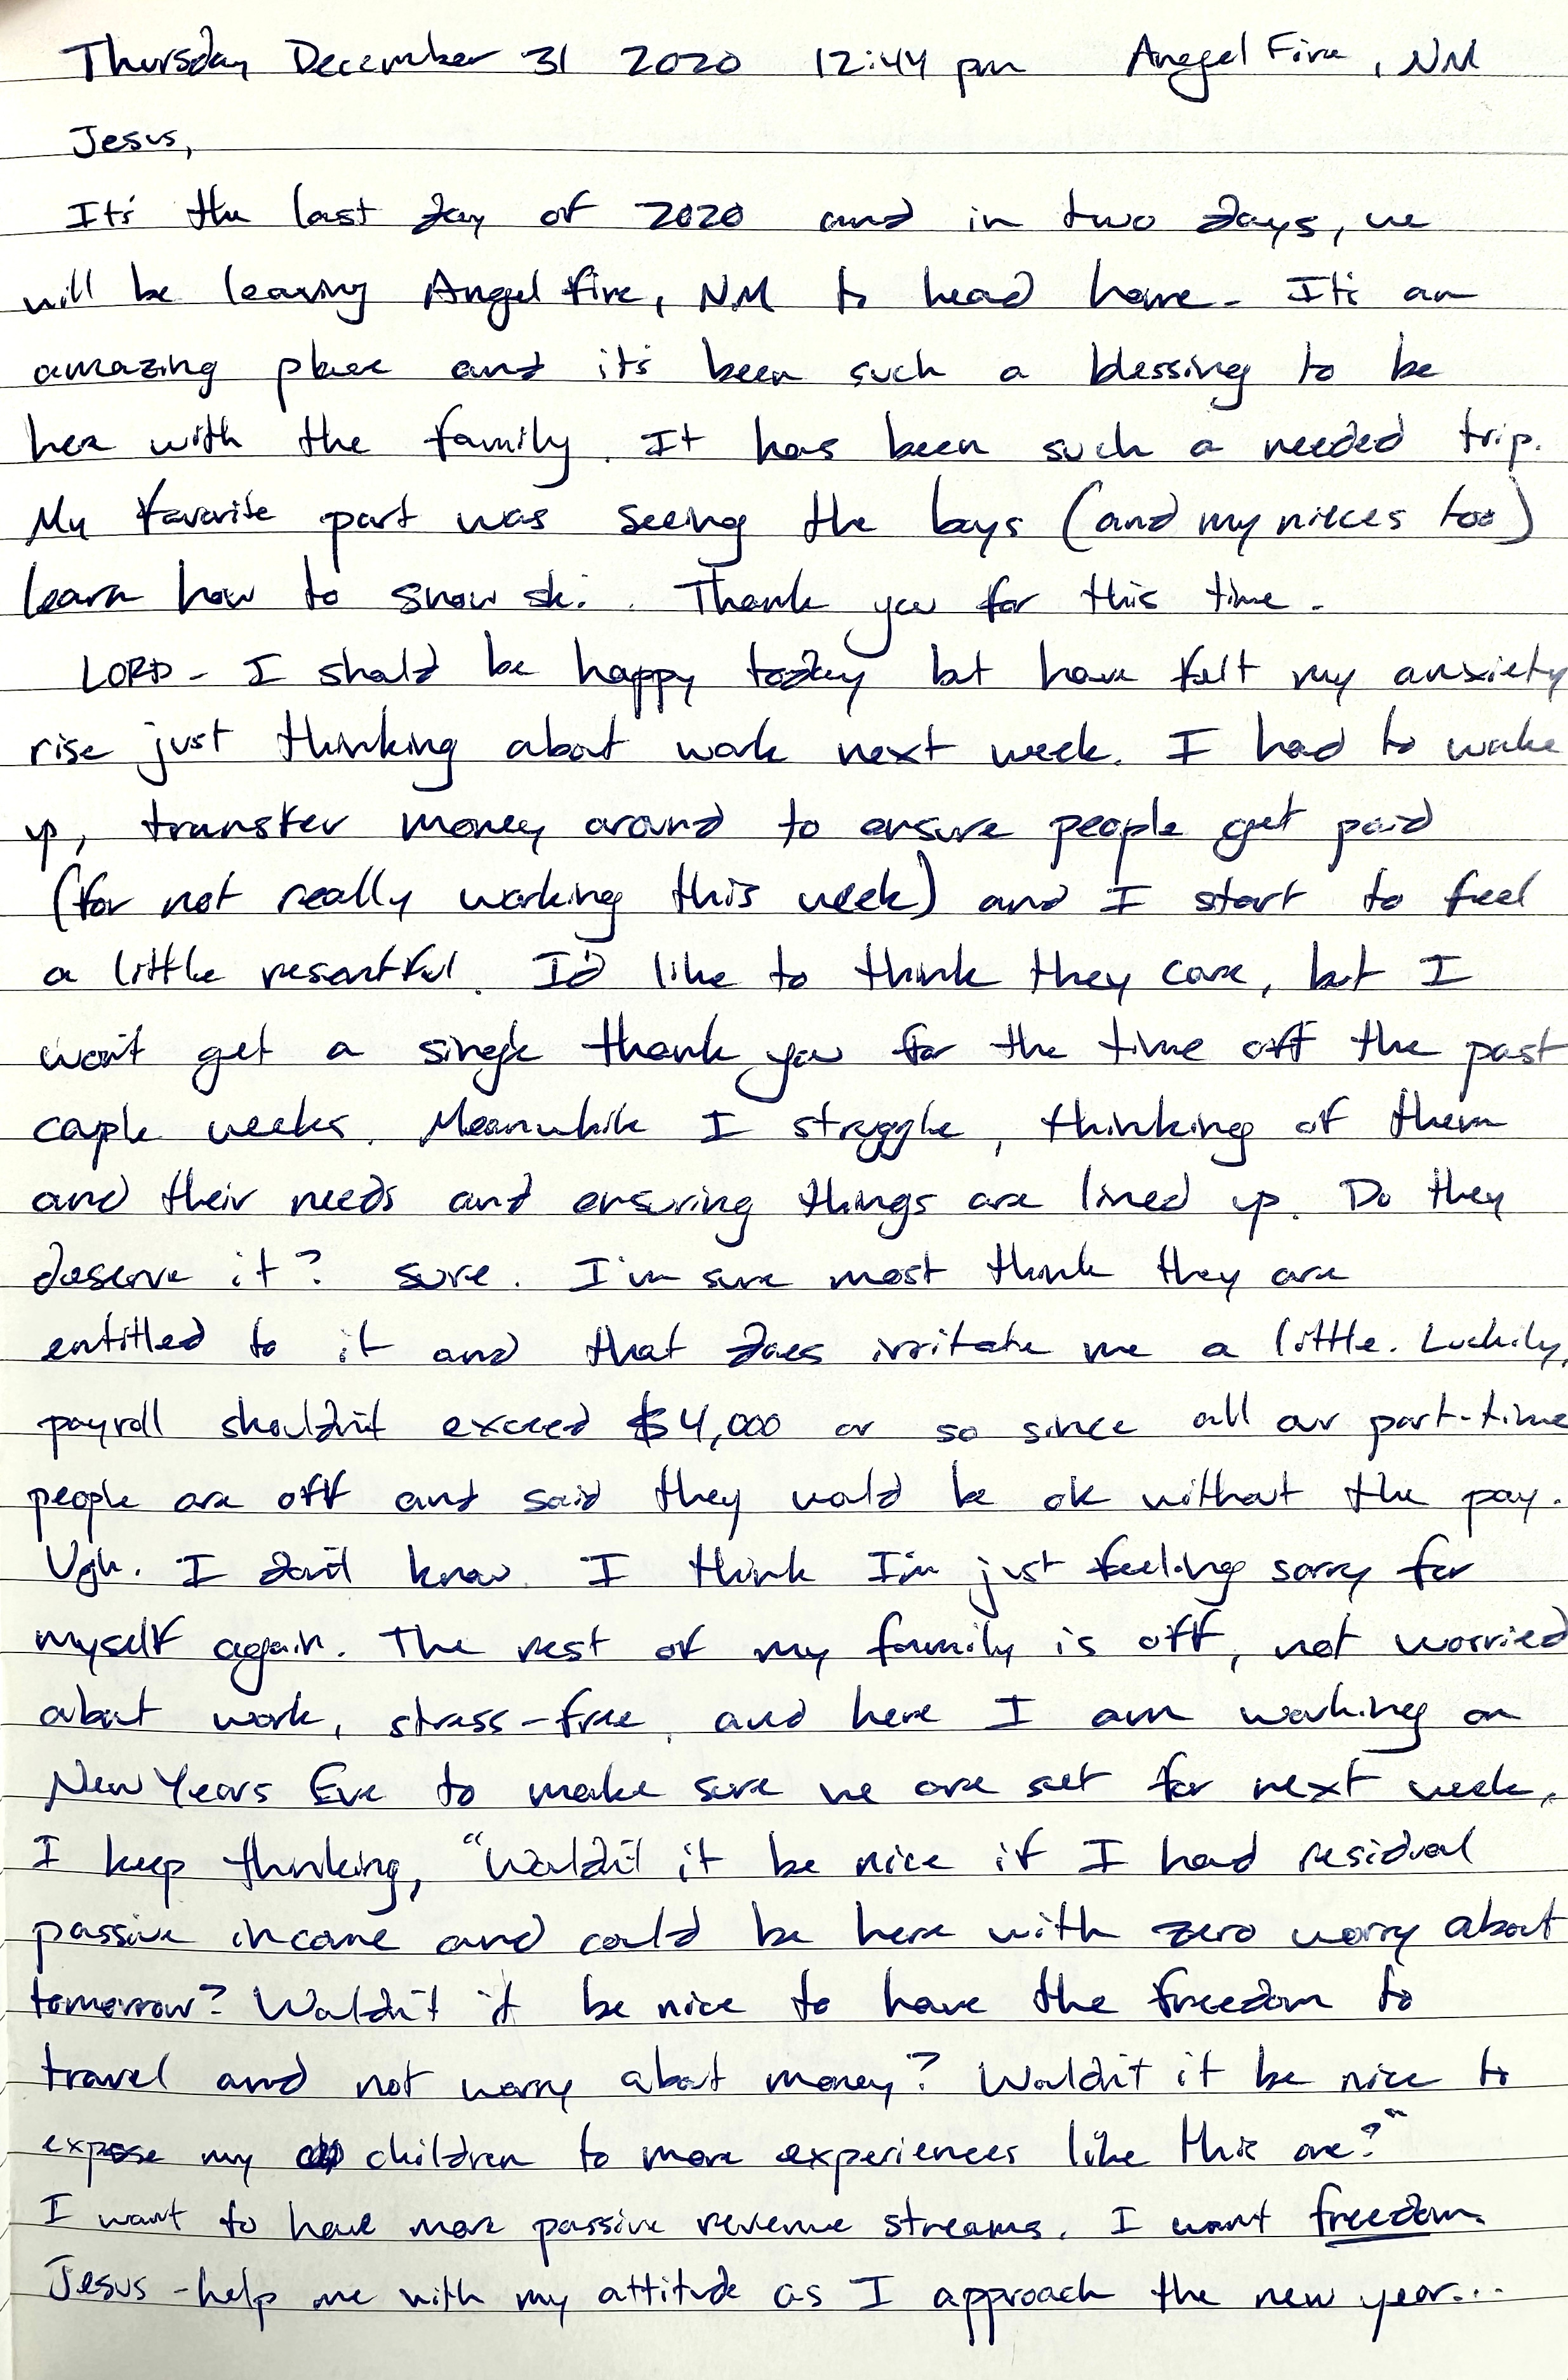 Thursday December 31 2020 12:44 pm Angel Fire, NM
Jesus,
It's the last day of 2020 and in two days, we
will be leaving Angel Fire, NM to head home. It's an
amazing place and it's been such a blessing to be
here with the family. It has been such a needed trip.
My favorite part was seeing the boys (and my nieces too)
learn how to snow ski. Thank you for this time.
LORD - I should be happy today but have felt my anxiety
rise just thinking about work next week. I had to wake
up, transfer money around to ensure people get paid
(for not really working this week) and I start to feel
a little resentful. I'd like to think they care, but I
won't get a single thank you for the time off the past
couple weeks. Meanwhile I struggle, thinking of them
and their needs and ensuring things are lined up. Do they
deserve it? Sure. I'm sure most think they are
entitled to it and that does irritate me a little. Luckily,
payroll shouldn't exceed $4,000 or so since all our part-time
people are off and said they would be ok without the pay.
Ugh. I don't know. I think I'm just feeling sorry for
myself again. The rest of my family is off, not worried
about work, stress-free, and here I am working on
New Years Eve to make sure we are set for next week.
I keep thinking, "Wouldn't it be nice if I had residual
passive income and could be here with zero worry about
tomorrow? Wouldn't it be nice to have the freedom to
travel and not worry about money? Wouldn't it be nice to
expose my children to more experiences like this one?"
I want to have more passive revenue streams. I want freedom.
Jesus - help me with my attitude as I approach the new year...